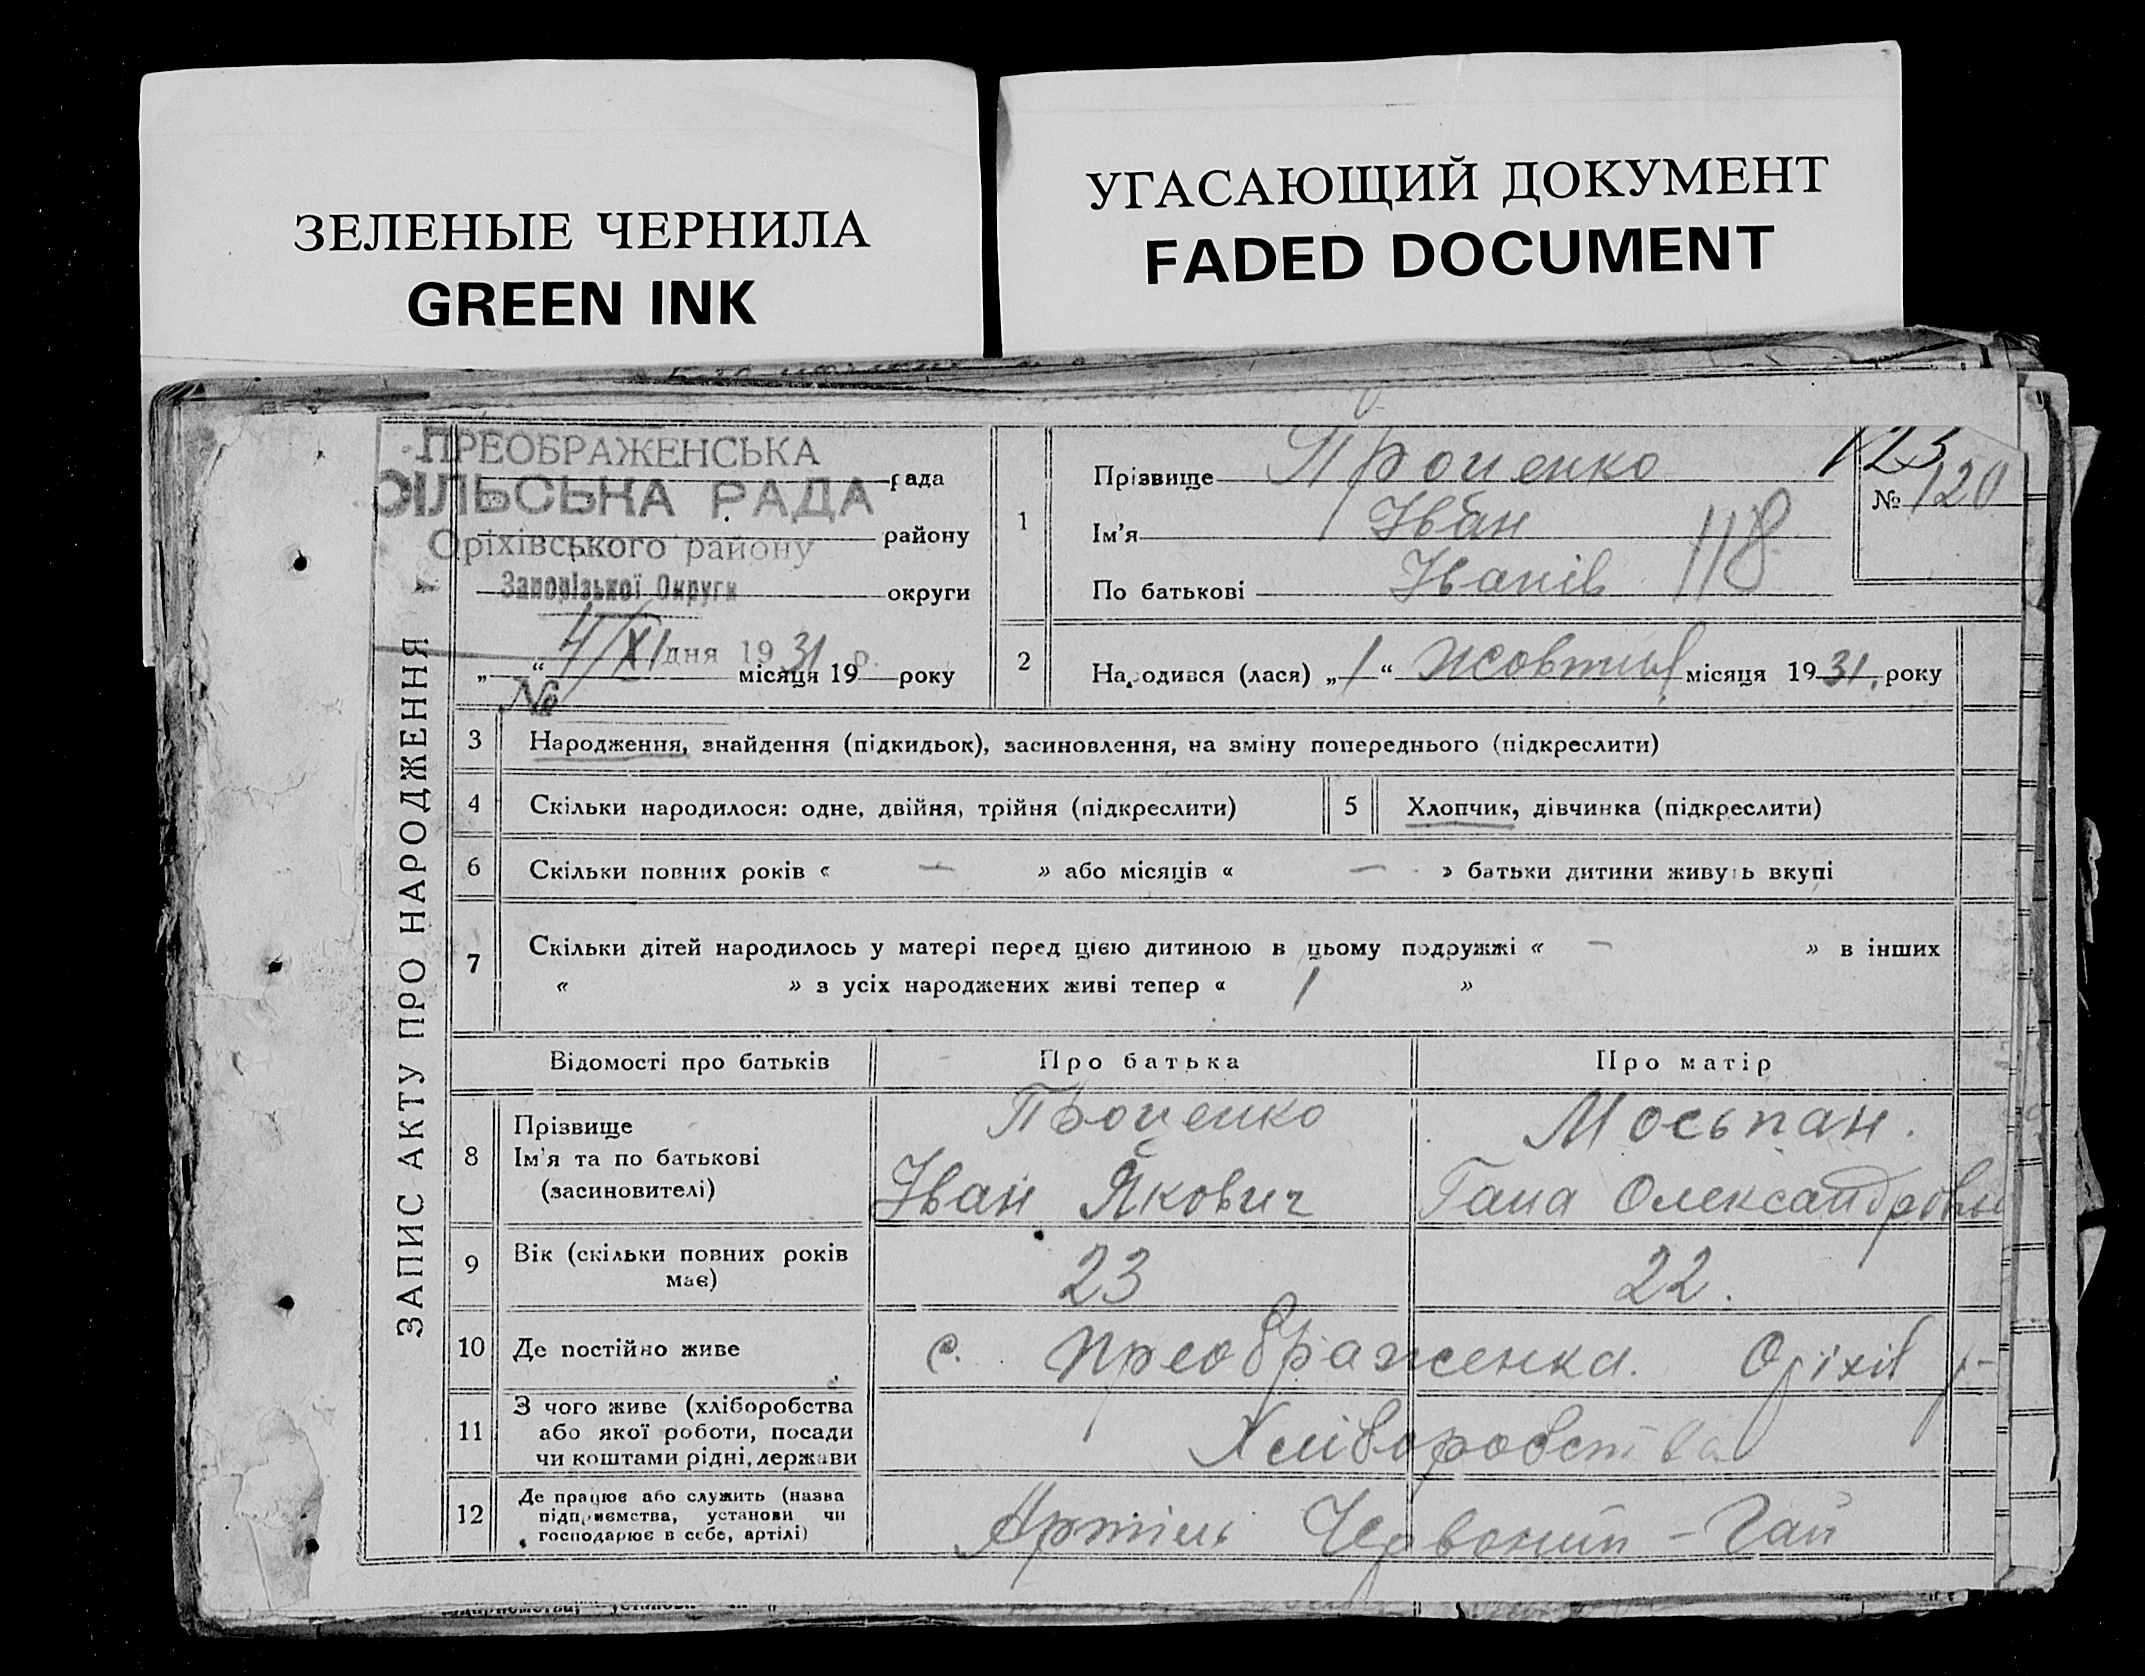 ЗЕЛЕНЫЕ ЧЕРНИЛА
GREEN INK
УГАСАЮЩИЙ ДОКУМЕНТ
FADED DOCUMENT
ЗАПИС АКТУ ПРО НАРОДЖЕННЯ
ПРЕОБРАЖЕНСЬКА
рада
СІЛЬСЬКА РАДА
Оріхівського району району
Запорізької Округи округи
4/XI дня 1931 р.
„ “ місяця 19 року
№
1
Прізвище Проценко
Ім'я Іван
По батькові Іванів
118
123
№ 120
2 Народився (лася) „1“ жовтня місяця 1931, року
3 Народження, знайдення (підкидьок), засиновлення, на зміну попереднього (підкреслити)
4 Скільки народилося: одне, двійня, трійня (підкреслити) 5 Хлопчик, дівчинка (підкреслити)
6 Скільки повних років « — » або місяців « — » батьки дитини живуть вкупі
7 Скільки дітей народилось у матері перед цією дитиною в цьому подружжі « — » в інших
« » з усіх народжених живі тепер « 1 »
Відомості про батьків Про батька Про матір
8 Прізвище Проценко Мосьпан.
Ім'я та по батькові Іван Якович Гана Олександровн
(засиновителі)
9 Вік (скільки повних років має) 23 22.
10 Де постійно живе с. Преображенка. Оріхів р-
11 З чого живе (хліборобства
або якої роботи, посади
чи коштами рідні, держави
Хліборобства
12 Де працює або служить (назва
підприємства, установи чи
господарює в себе, артілі)
Артіль Червоний-Гай